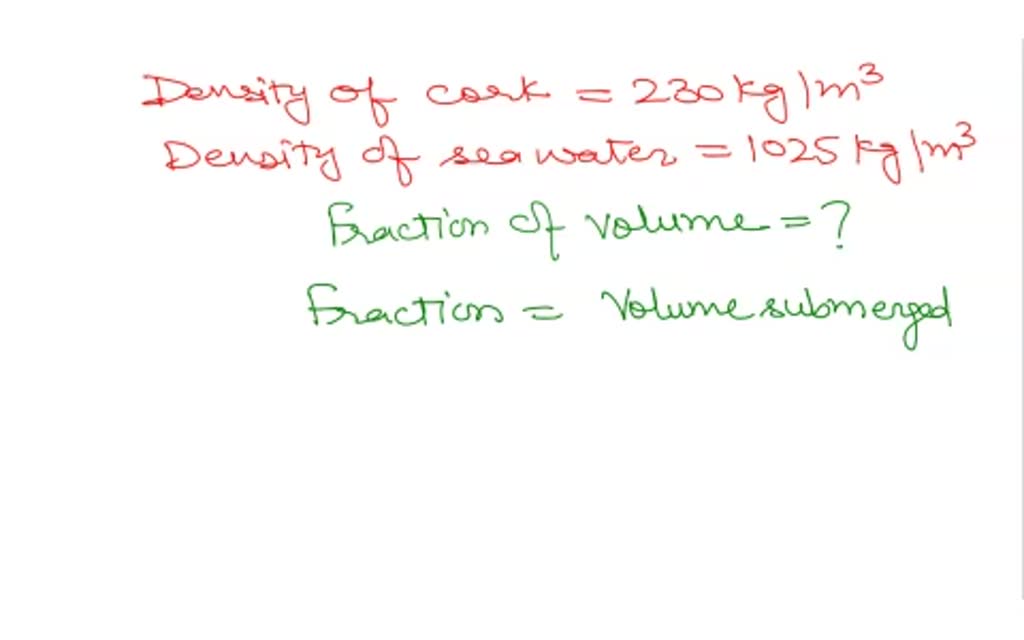 Density of cork = 230 kg/m³
Density of sea water = 1025 kg/m³
Fraction of volume = ?
Fraction = Volume submerged